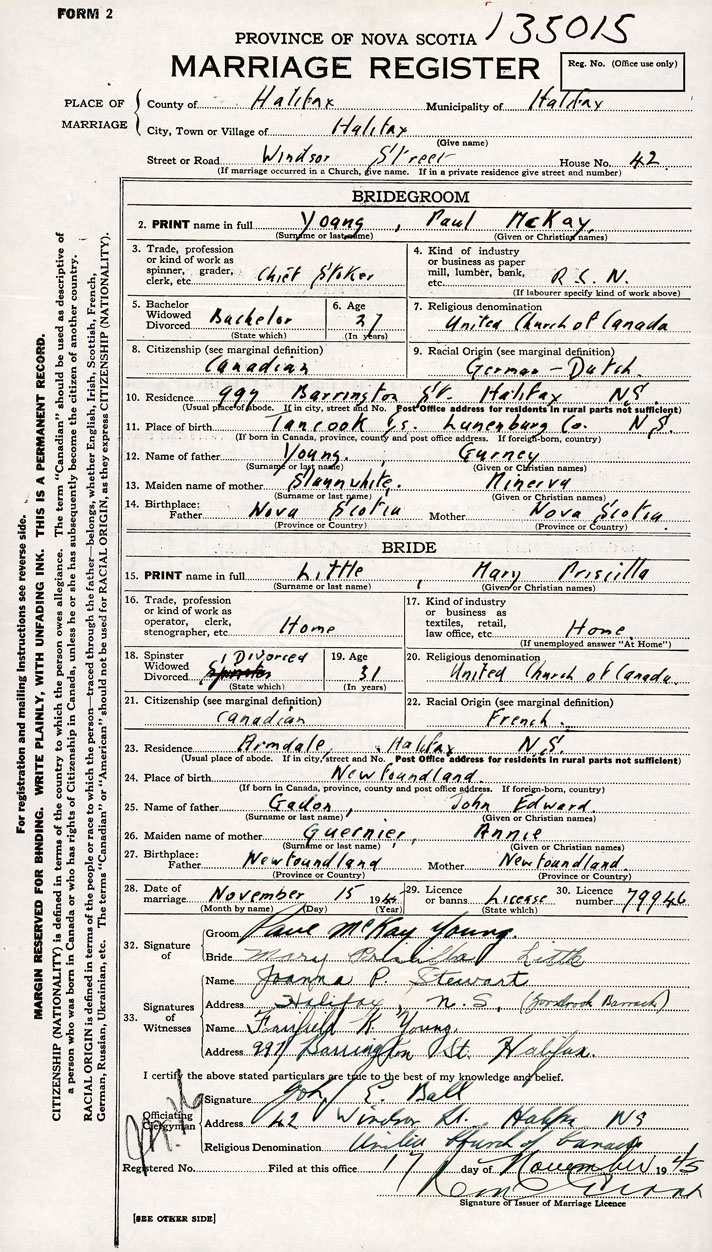 FORM 2
135015
PROVINCE OF NOVA SCOTIA
MARRIAGE REGISTER
Reg. No. (Office use only)
PLACE OF MARRIAGE
County of Halifax Municipality of Halifax
City, Town or Village of Halifax
(Give name)
Street or Road Windsor Street House No. 42
(If marriage occurred in a Church, give name. If in a private residence give street and number)
BRIDEGROOM
2. PRINT name in full Young, Paul McKay
(Surname or last name) (Given or Christian names)
3. Trade, profession or kind of work as spinner, grader, clerk, etc. Chief Stoker
4. Kind of industry or business as paper mill, lumber, bank, etc. R.S.N.
(If labourer specify kind of work above)
5. Bachelor Widowed Divorced Bachelor
(State which)
6. Age 27
(In years)
7. Religious denomination United Church of Canada
8. Citizenship (see marginal definition) Canadian
9. Racial Origin (see marginal definition) German-Dutch.
10. Residence 997 Barrington St. Halifax N.S.
(Usual place of abode. If in city, street and No. Post Office address for residents in rural parts not sufficient)
11. Place of birth Tancook Is. Lunenburg Co. N.S.
(If born in Canada, province, county and post office address. If foreign-born, country)
12. Name of father Young, Gurney
(Surname or last name) (Given or Christian names)
13. Maiden name of mother Slaunwhite. Minerva
(Surname or last name) (Given or Christian names)
14. Birthplace: Father Nova Scotia Mother Nova Scotia
(Province or Country) (Province or Country)
BRIDE
15. PRINT name in full Little, Mary Priscilla
(Surname or last name) (Given or Christian names)
16. Trade, profession or kind of work as operator, clerk, stenographer, etc. Home
17. Kind of industry or business as textiles, retail, law office, etc. Home.
(If unemployed answer "At Home")
18. Spinster Widowed Divorced Divorced
(State which)
19. Age 31
(In years)
20. Religious denomination United Church of Canada.
21. Citizenship (see marginal definition) Canadian
22. Racial Origin (see marginal definition) French.
23. Residence Armdale, Halifax N.S.
(Usual place of abode. If in city, street and No. Post Office address for residents in rural parts not sufficient)
24. Place of birth Newfoundland.
(If born in Canada, province, county and post office address. If foreign-born, country)
25. Name of father Gadon, John Edward.
(Surname or last name) (Given or Christian names)
26. Maiden name of mother Guernier, Annie
(Surname or last name) (Given or Christian names)
27. Birthplace: Father Newfoundland Mother Newfoundland.
(Province or Country) (Province or Country)
28. Date of marriage November 15 19
(Month by name) (Day) (Year)
29. Licence or banns. License
(State which)
30. Licence number 79946
32. Signature of
Groom Paul McKay Young.
Bride Mary Priscilla Little
33. Signatures of Witnesses
Name Joanna P. Stewart
Address Halifax, N.S. Barracks)
Name Fairfield K. Young.
Address 997 Barrington St. Halifax.
I certify the above stated particulars are true to the best of my knowledge and belief.
Officiating Clergyman
Signature John E. Ball
Address 42 Windsor St. Halifax NS
Religious Denomination United Church of Canada
Registered No. Filed at this office 17 day of November 1945
Signature of Issuer of Marriage Licence
[SEE OTHER SIDE]
For registration and mailing instructions see reverse side.
MARGIN RESERVED FOR BINDING. WRITE PLAINLY, WITH UNFADING INK. THIS IS A PERMANENT RECORD.
CITIZENSHIP (NATIONALITY) is defined in terms of the country to which the person owes allegiance. The term "Canadian" should be used as descriptive of
a person who was born in Canada or who has rights of Citizenship in Canada, unless he or she has subsequently become the citizen of another country.
RACIAL ORIGIN is defined in terms of the people or race to which the person—traced through the father—belongs, whether English, Irish, Scottish, French,
German, Russian, Ukrainian, etc. The terms "Canadian" or "American" should not be used for RACIAL ORIGIN, as they express CITIZENSHIP (NATIONALITY).